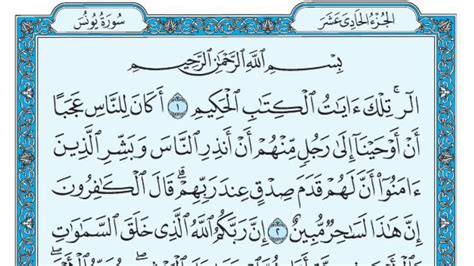 الجزء الحادي عشر
سورة يونس
بسم الله الرحمن الرحيم
الٓرۚ تِلْكَ ءَايَٰتُ ٱلْكِتَٰبِ ٱلْحَكِيمِ ١ أَكَانَ لِلنَّاسِ عَجَبًا
أَنْ أَوْحَيْنَآ إِلَىٰ رَجُلٍ مِّنْهُمْ أَنْ أَنذِرِ ٱلنَّاسَ وَبَشِّرِ ٱلَّذِينَ
ءَامَنُوٓا۟ أَنَّ لَهُمْ قَدَمَ صِدْقٍ عِندَ رَبِّهِمْۗ قَالَ ٱلْكَٰفِرُونَ
إِنَّ هَٰذَا لَسَٰحِرٌ مُّبِينٌ ٢ إِنَّ رَبَّكُمُ ٱللَّهُ ٱلَّذِى خَلَقَ ٱلسَّمَٰوَٰتِ